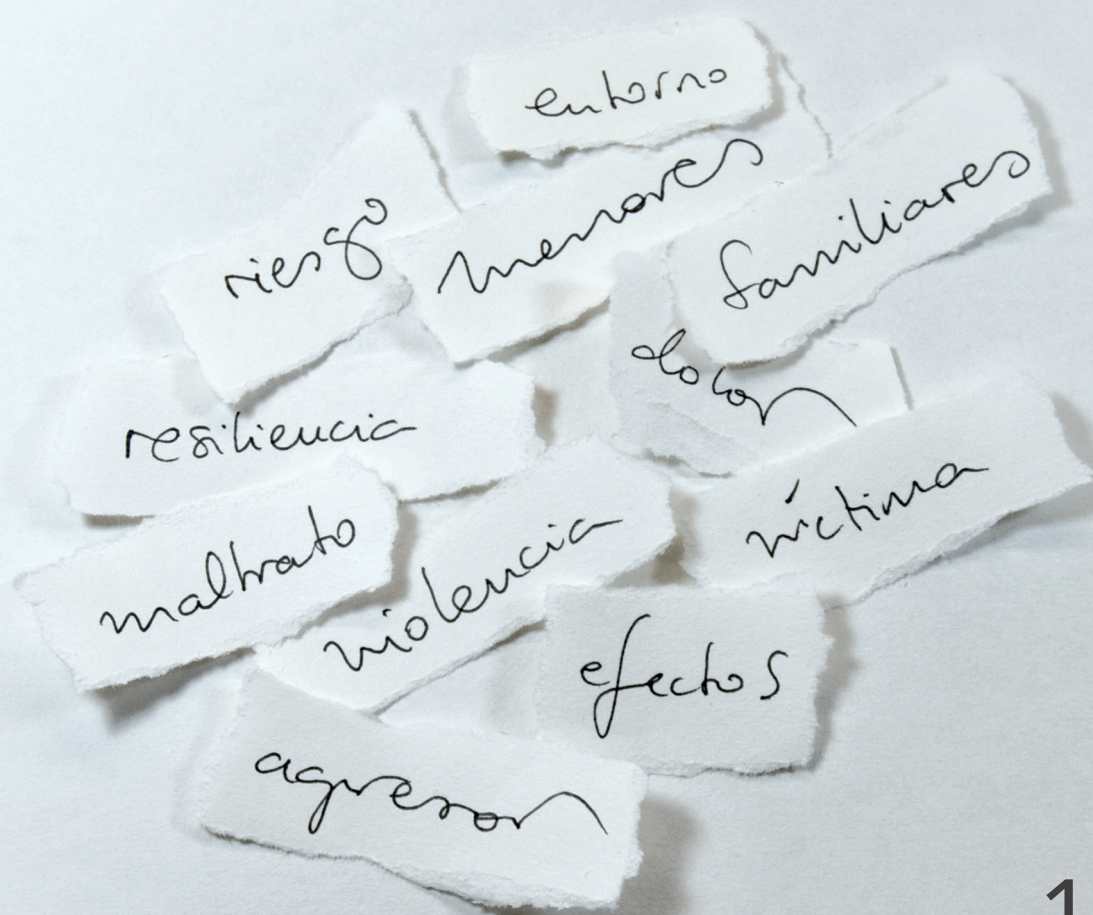 entorno
riesgo
menores
familiares
dolor
resiliencia
maltrato
violencia
víctima
efectos
agresor
1